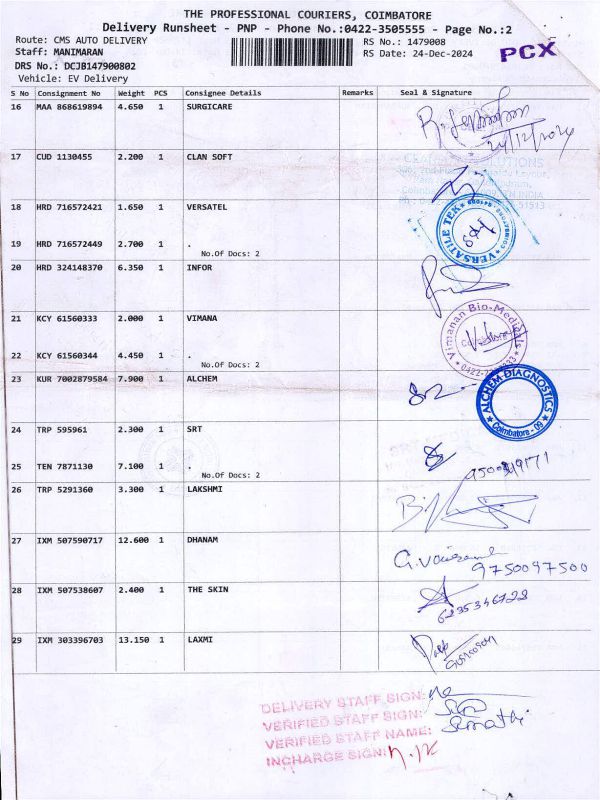 THE PROFESSIONAL COURIERS, COIMBATORE
Delivery Runsheet - PNP - Phone No.:0422-3505555 - Page No.:2
Route: CMS AUTO DELIVERY
RS No.: 1479008
Staff: MANIMARAN
RS Date: 24-Dec-2024
PCX
DRS No.: DCJB147900802
Vehicle: EV Delivery
S No Consignment No Weight PCS Consignee Details Remarks Seal & Signature
16 MAA 868619894 4.650 1 SURGICARE
24/12/2024
17 CUD 1130455 2.200 1 CLAN SOFT
18 HRD 716572421 1.650 1 VERSATEL
VERSATILE TEK
19 HRD 716572449 2.700 1 .
No.Of Docs: 2
20 HRD 324148370 6.350 1 INFOR
21 KCY 61560333 2.000 1 VIMANA
Vimanan Bio-Medicals
22 KCY 61560344 4.450 1 .
No.Of Docs: 2
23 KUR 7002879584 7.900 1 ALCHEM
ALCHEM DIAGNOSTICS
Coimbatore - 09
24 TRP 595961 2.300 1 SRT
25 TEN 7871130 7.100 1 .
No.Of Docs: 2
26 TRP 5291360 3.300 1 LAKSHMI
27 IXM 507590717 12.600 1 DHANAM
9750097500
28 IXM 507538607 2.400 1 THE SKIN
29 IXM 303396703 13.150 1 LAXMI
DELIVERY STAFF SIGN:
VERIFIED STAFF SIGN:
VERIFIED STAFF NAME:
INCHARGE SIGN: